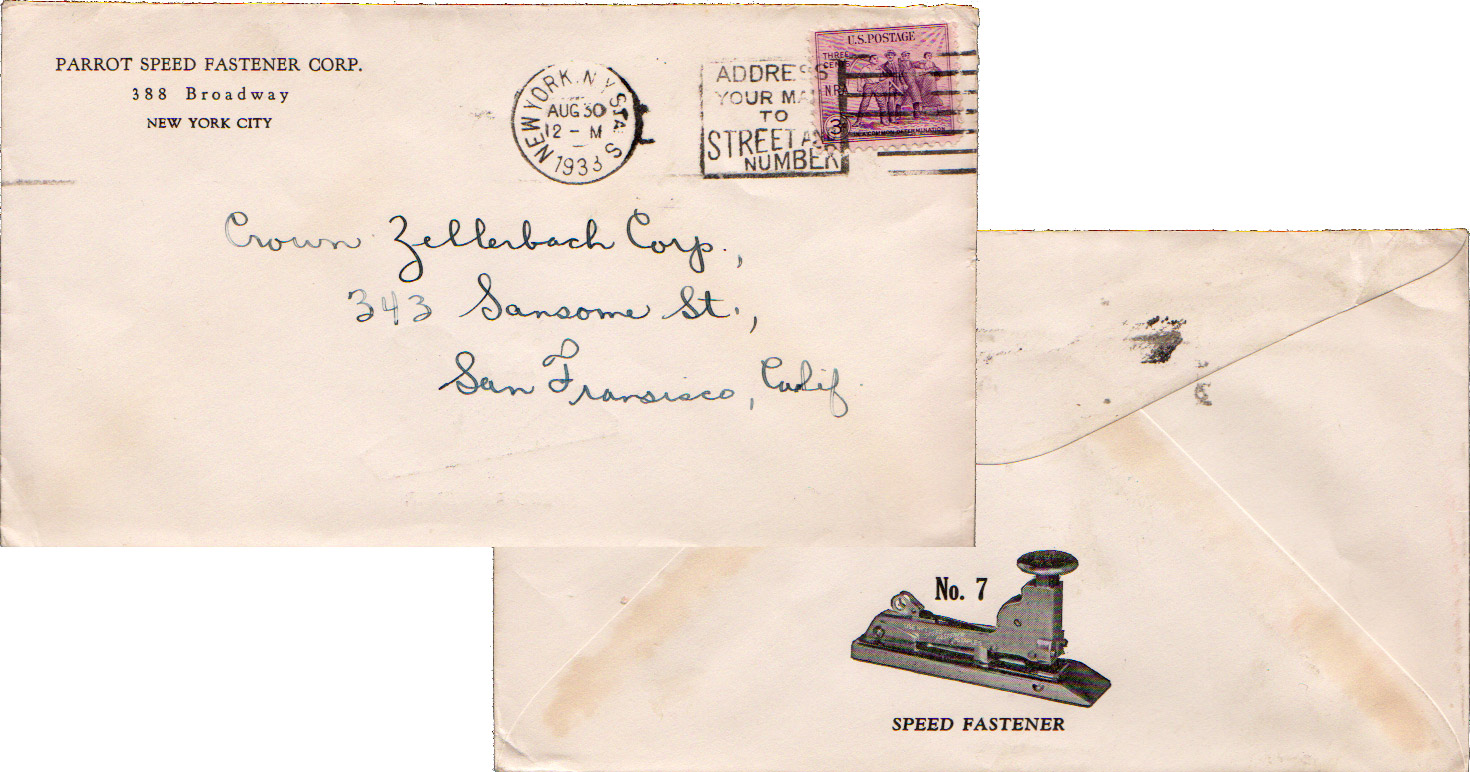 PARROT SPEED FASTENER CORP.
388 Broadway
NEW YORK CITY
NEW YORK, N.Y. STA. S
AUG 30
12 - M
1933
ADDRESS
YOUR MA
TO
STREET A
NUMBER
U.S. POSTAGE
THREE
CENTS
NRA
3
IN A COMMON DETERMINATION
Crown Zellerbach Corp.,
343 Sansome St.,
San Fransisco, Calif.
No. 7
SPEED FASTENER